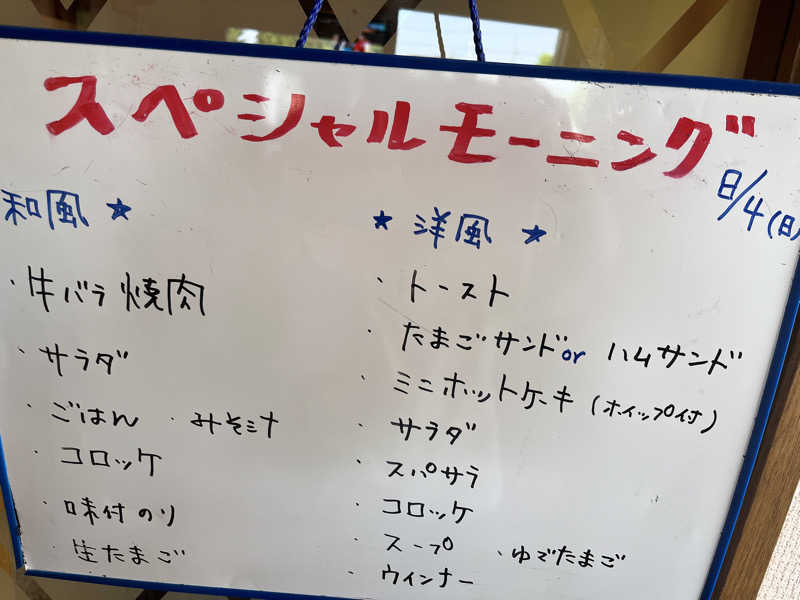 スペシャルモーニング
8/4(日)
和風 ★
・牛バラ焼肉
・サラダ
・ごはん ・みそ汁
・コロッケ
・味付のり
・生たまご
★ 洋風 ★
・トースト
・たまごサンドor ハムサンド
・ミニホットケーキ(ホイップ付)
・サラダ
・スパサラ
・コロッケ
・スープ ・ゆでたまご
・ウインナー